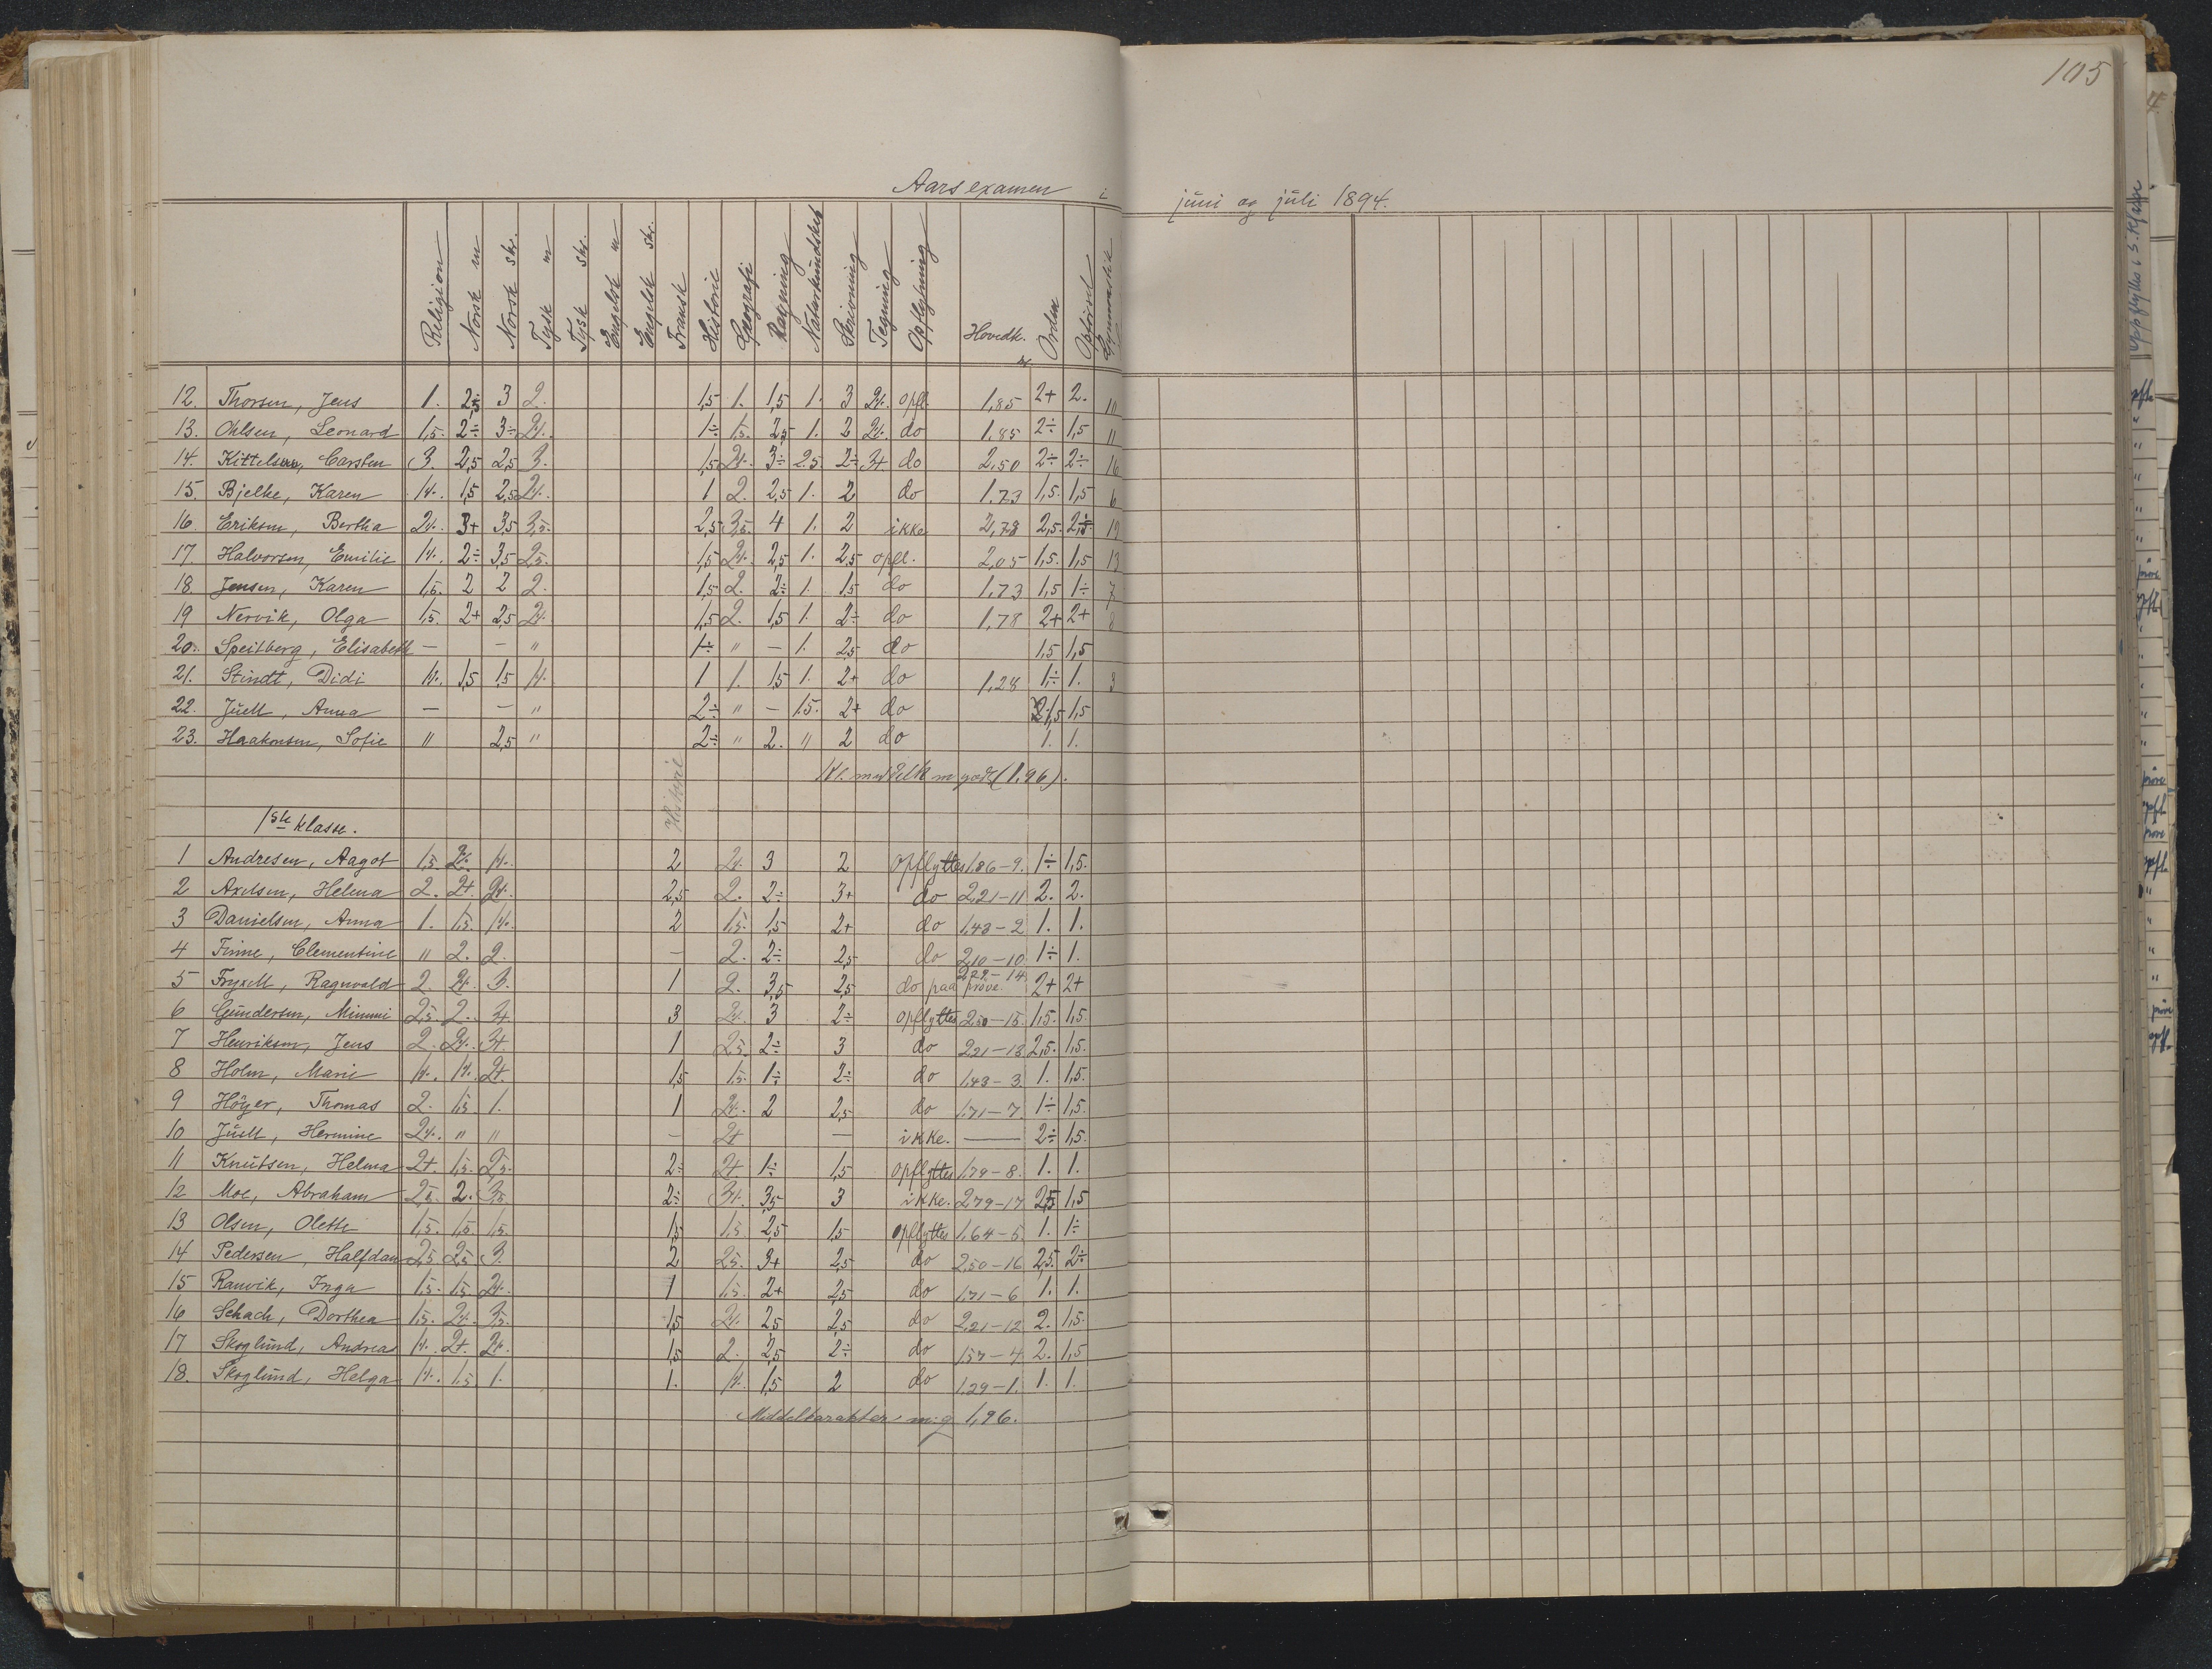 105
Aarsexamen i juni og juli 1894.
Religion Norsk m Norsk skr. Tysk m Tysk skr. Engelsk m Engelsk skr. Fransk Historie Geografi Regning Naturkundskab Skrivning Tegning Opflytning Hovedk. Orden Opførsel Gymnastik
12. Thorsen, Jens 1. 2,5 3 2. 1,5 1. 1,5 1. 3 2÷. opfl. 1,85 2+ 2. 10
13. Ohlsen, Leonard 1,5. 2÷ 3÷ 2÷. 1÷ 1,5. 2,5 1. 2 2÷. do 1,85 2÷ 1,5 11
14. Kittelsen, Carsten 3. 2,5 2,5 3. 1,5 2÷. 3÷ 2,5. 2÷ 3+ do 2,50 2÷ 2÷ 16
15. Bjelke, Karen 1÷. 1,5 2,5 2÷. 1 2. 2,5 1. 2 do 1.73 1,5. 1,5 6
16. Eriksen, Bertha 2÷. 3+ 3,5 3,5. 2,5 3,5. 4 1. 2 ikke 2,78 2,5. 19
17. Halvorsen, Emilie 1÷. 2÷ 3,5 2,5. 1,5 2÷. 2,5 1. 2,5 opfl. 2,05 1,5. 1,5 13
18. Jensen, Karen 1,5. 2 2 2. 1,5 2. 2÷ 1. 1,5 do 1,73 1,5 1÷ 7
19 Nervik, Olga 1,5. 2+ 2,5 2÷. 1,5 2. 1,5 1. 2÷ do 1,78 2+ 2+ 8
20. Speitberg, Elisabeth — — " 1÷ " — 1. 2,5 do 1,5 1,5
21. Stindt, Didi 1÷. 1,5 1,5 1÷. 1 1. 1,5 1. 2+ do 1,28 1÷ 1. 3
22. Juell, Anna — — " 2÷ " — 1,5. 2+ do 1,5 1,5
23. Haakonsen, Sofie " 2,5 " 2÷ " 2. " 2 do 1. 1.
Kl. middelk m godt (1.96).
Historie
1ste klasse.
1 Andresen, Aagot 1,5. 2÷. 1÷. 2 2÷. 3 2 opflyttes 1.86–9. 1÷ 1,5.
2 Axelsen, Helena 2. 2+. 2÷. 2,5 2. 2÷ 3+ do 2,21–11 2. 2.
3 Danielsen, Anna 1. 1,5. 1÷. 2 1,5. 1,5 2+ do 1,43–2 1. 1.
4 Finne, Clementine " 2. 2. — 2. 2÷ 2,5 do 2,10–10. 1÷ 1.
5 Fryxell, Ragnvald 2. 2÷. 3. 1 2. 3,5 2,5 do paa prøve 2,29–14. 2+ 2+
6 Gundersen, Mimmi 2,5. 2. 3+ 3 2÷. 3 2÷ opflyttes 2,50–15. 1,5. 1,5.
7 Henriksen, Jens 2. 2÷. 3+ 1 2,5. 2÷ 3 do 2,21–13. 2,5. 1,5.
8 Holm, Marie 1÷. 1÷. 2+. 1,5 1,5. 1÷ 2÷ do 1,43–3. 1. 1,5.
9 Höyer, Thomas 2. 1,5 1. 1 2÷. 2 2,5 do 1,71–7. 1÷ 1,5.
10 Juell, Hermine 2÷. " " — 2+ — ikke. — 2÷ 1,5.
11 Knutsen, Helma 2+. 1,5. 2,5. 2÷ 2+ 1÷ 1,5 opflyttes 1,79–8. 1. 1.
12 Moe, Abraham 2,5. 2. 3,5. 2÷ 3÷. 3,5 3 ikke. 2,79–17 2,5 1,5
13 Olsen, Olette 1,5. 1,5. 1,5. 1,5 1,5. 2,5 1,5 opflyttes 1,64–5. 1. 1÷
14 Pedersen, Halfdan 2,5. 2,5 3. 2 2,5. 3+ 2,5 do 2,50–16. 2,5. 2÷
15 Ranvik, Inga 1,5. 1,5 2÷. 1 1,5. 2+ 2,5 do 1,71–6 1. 1.
16 Schach, Dorthea 1,5. 2÷. 3,5. 1,5 2÷. 2,5 2,5 do 2,21–12 2. 1,5.
17 Skoglund, Andreas 1÷. 2+. 2÷. 1,5 2. 2,5 2÷ do 1,57–4. 2. 1,5
18. Skoglund, Helga 1÷. 1,5. 1. 1. 1÷. 1,5 2 do 1,29–1. 1. 1.
Middelkarakter m.g 1,96.